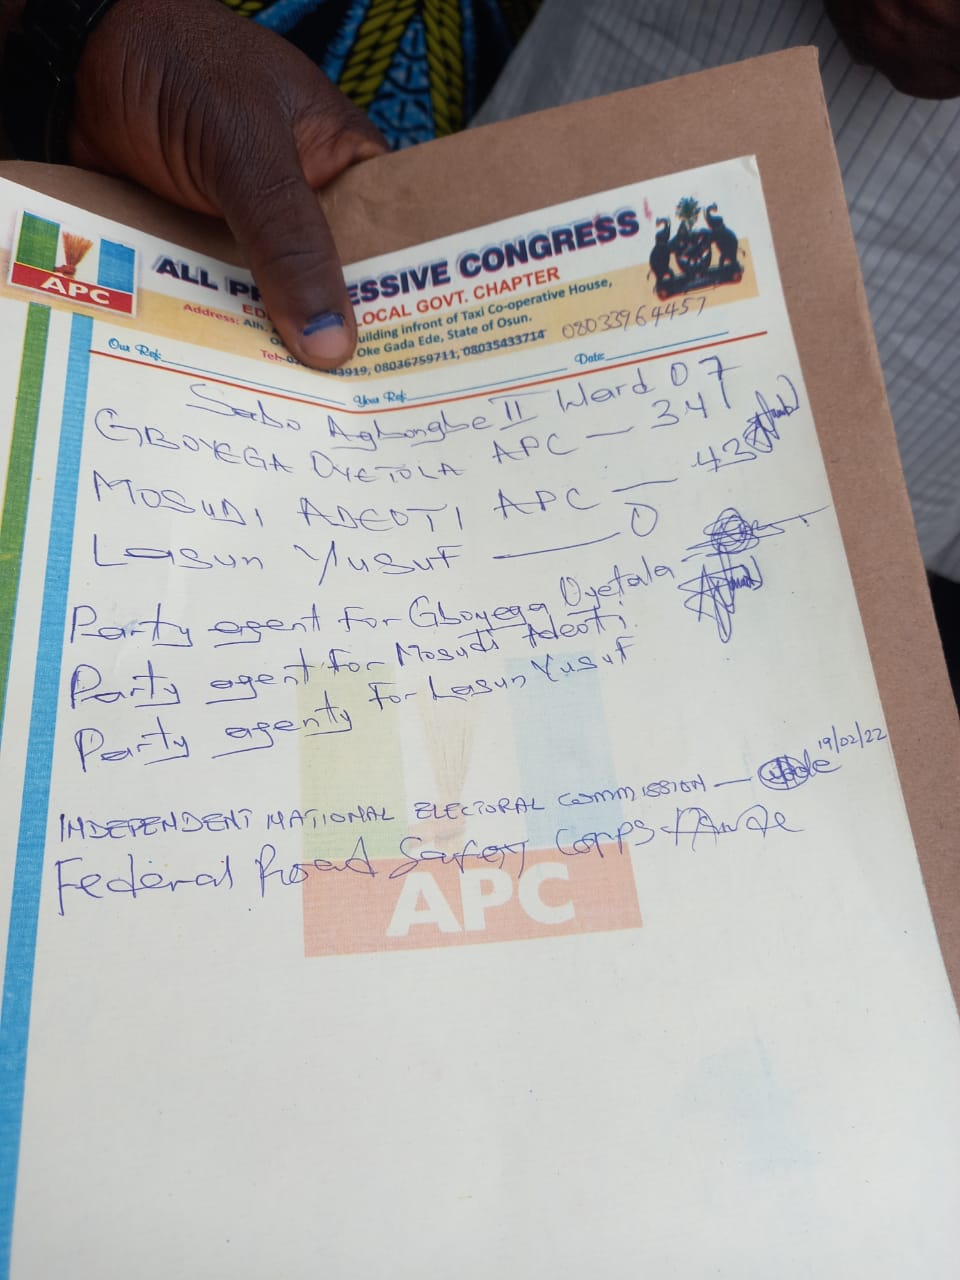 APC
ALL PR ESSIVE CONGRESS
ED LOCAL GOVT. CHAPTER
Address: Alh. uilding infront of Taxi Co-operative House,
Oke Gada Ede, State of Osun.
Tel: 3919, 08036759711, 08035433714 08033964457
Our Ref: Your Ref: Date:
Sabo Agbongbe II Ward 07
GBOYEGA OYETOLA APC — 347
MOSUDI ADEOTI APC — 43
Lasun Yusuf — 0
Party agent for Gboyega Oyetola
Party agent for Mosudi Adeoti
Party agenty for Lasun Yusuf
INDEPENDENT NATIONAL ELECTORAL COMMISSION — 19/02/22
Federal Road Safety Corps
APC